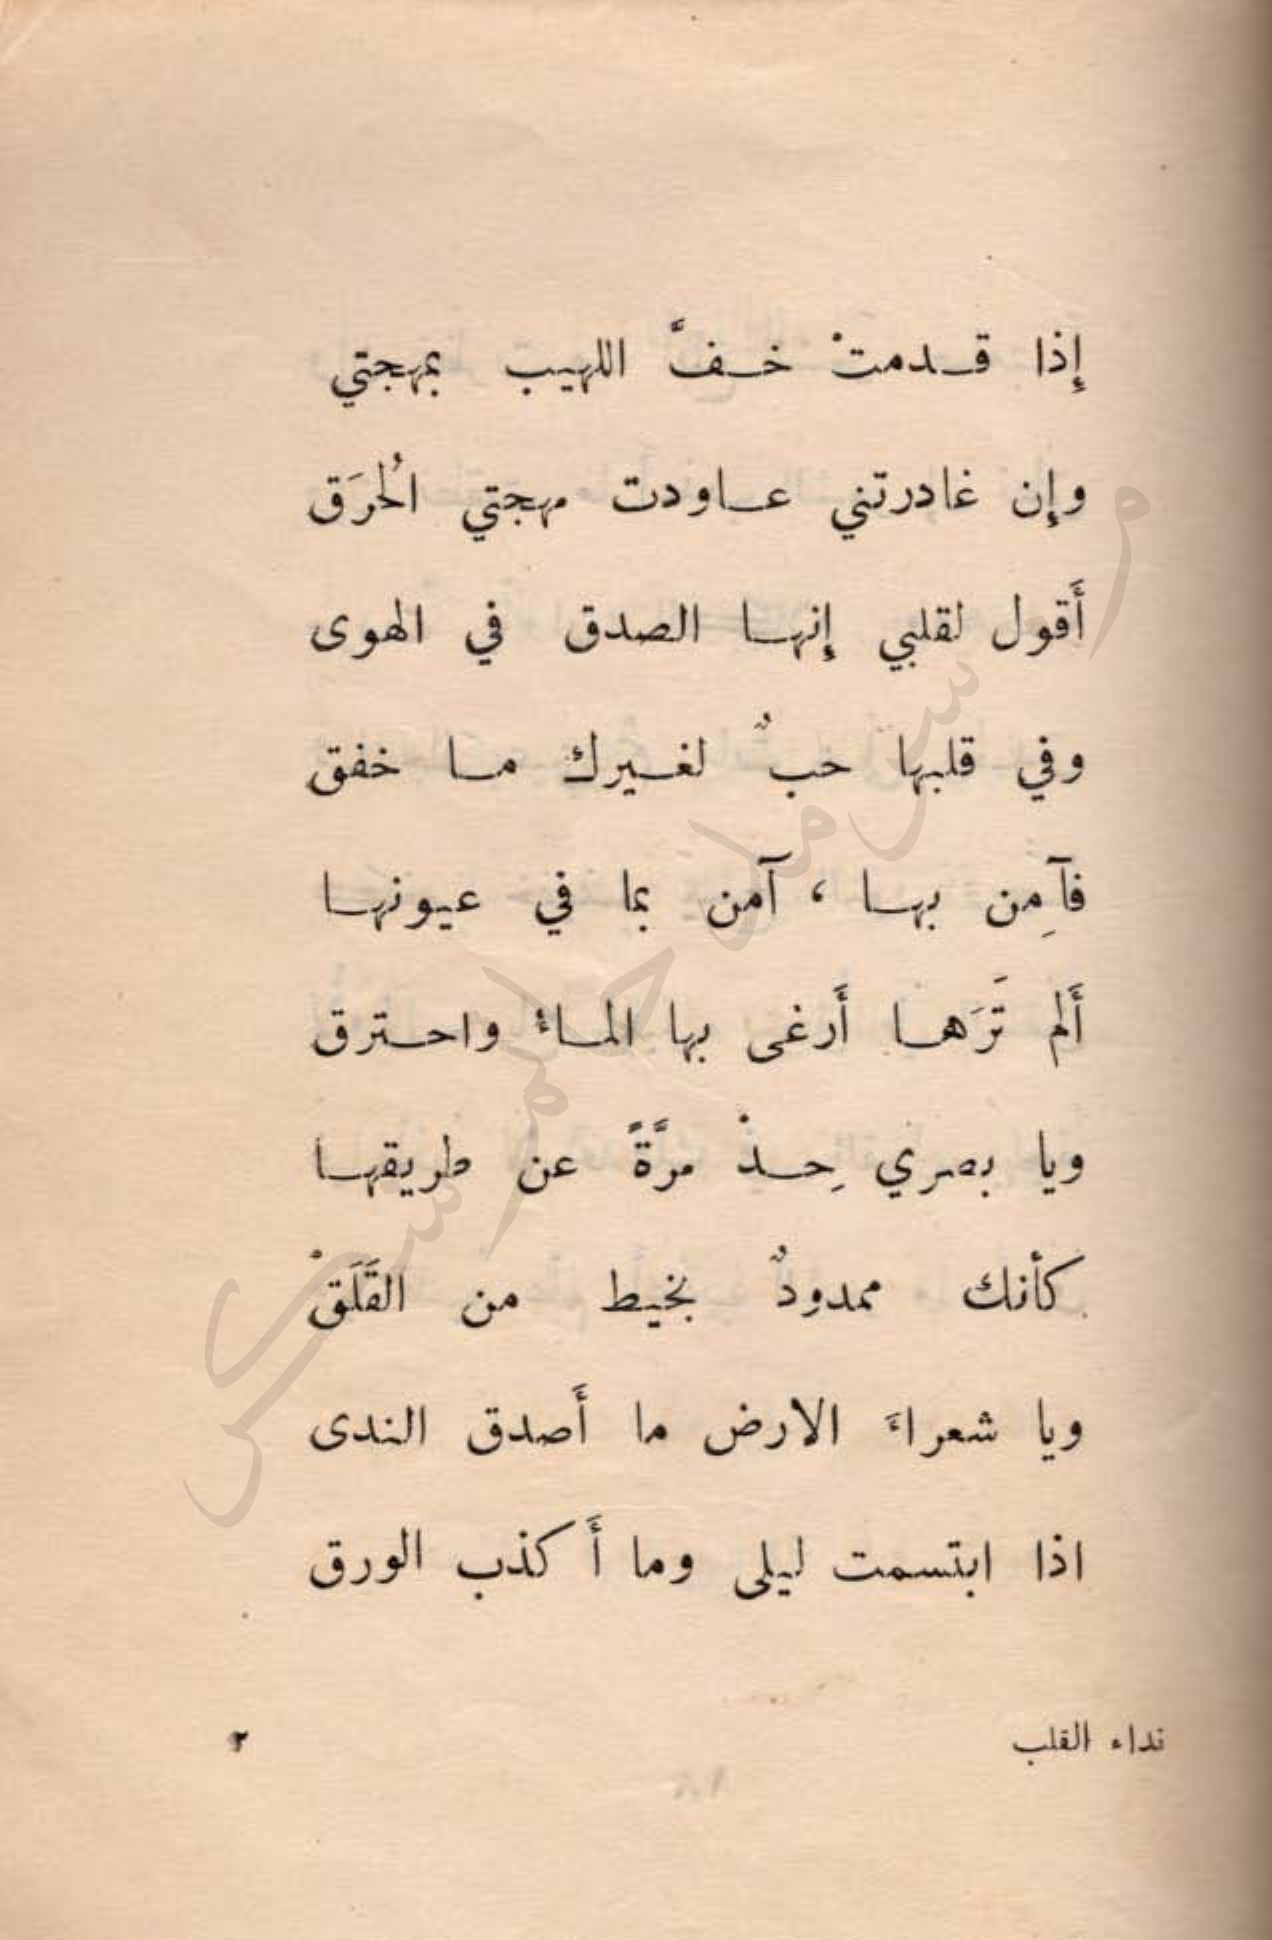 إِذا قـدمتْ خـفَّ اللهيب بمهجتي
وإِن غادرتني عـاودت مهجتي الحُرَق
أَقول لقلبي إِنهـا الصدق في الهوى
وفي قلبها حبٌ لغـيرك مـا خفق
فآمِن بهـا ، آمن بما في عيونهـا
أَلم تَرَهـا أَرغى بها المـاءُ واحـترق
ويا بصري حِـذْ مرَّةً عن طريقهـا
كأنك ممدودٌ بخيط من القَلَقْ
ويا شعراءَ الارض ما أَصدق الندى
اذا ابتسمت ليلى وما أَكذب الورق
نداء القلب ٢